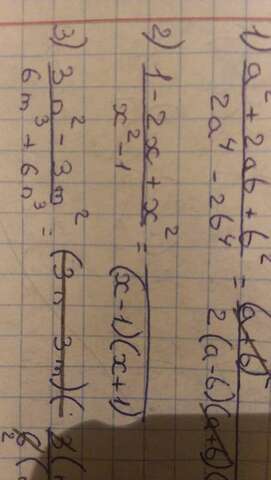 1) a² + 2ab + b² / 2a⁴ - 2b⁴ = (a+b)² / 2(a-b)(a+b)(
2) 1 - 2x + x² / x² - 1 = / (x-1)(x+1)
3) 3n² - 3m² / 6m³ + 6n³ = (3n 3m)( 3( / 6(